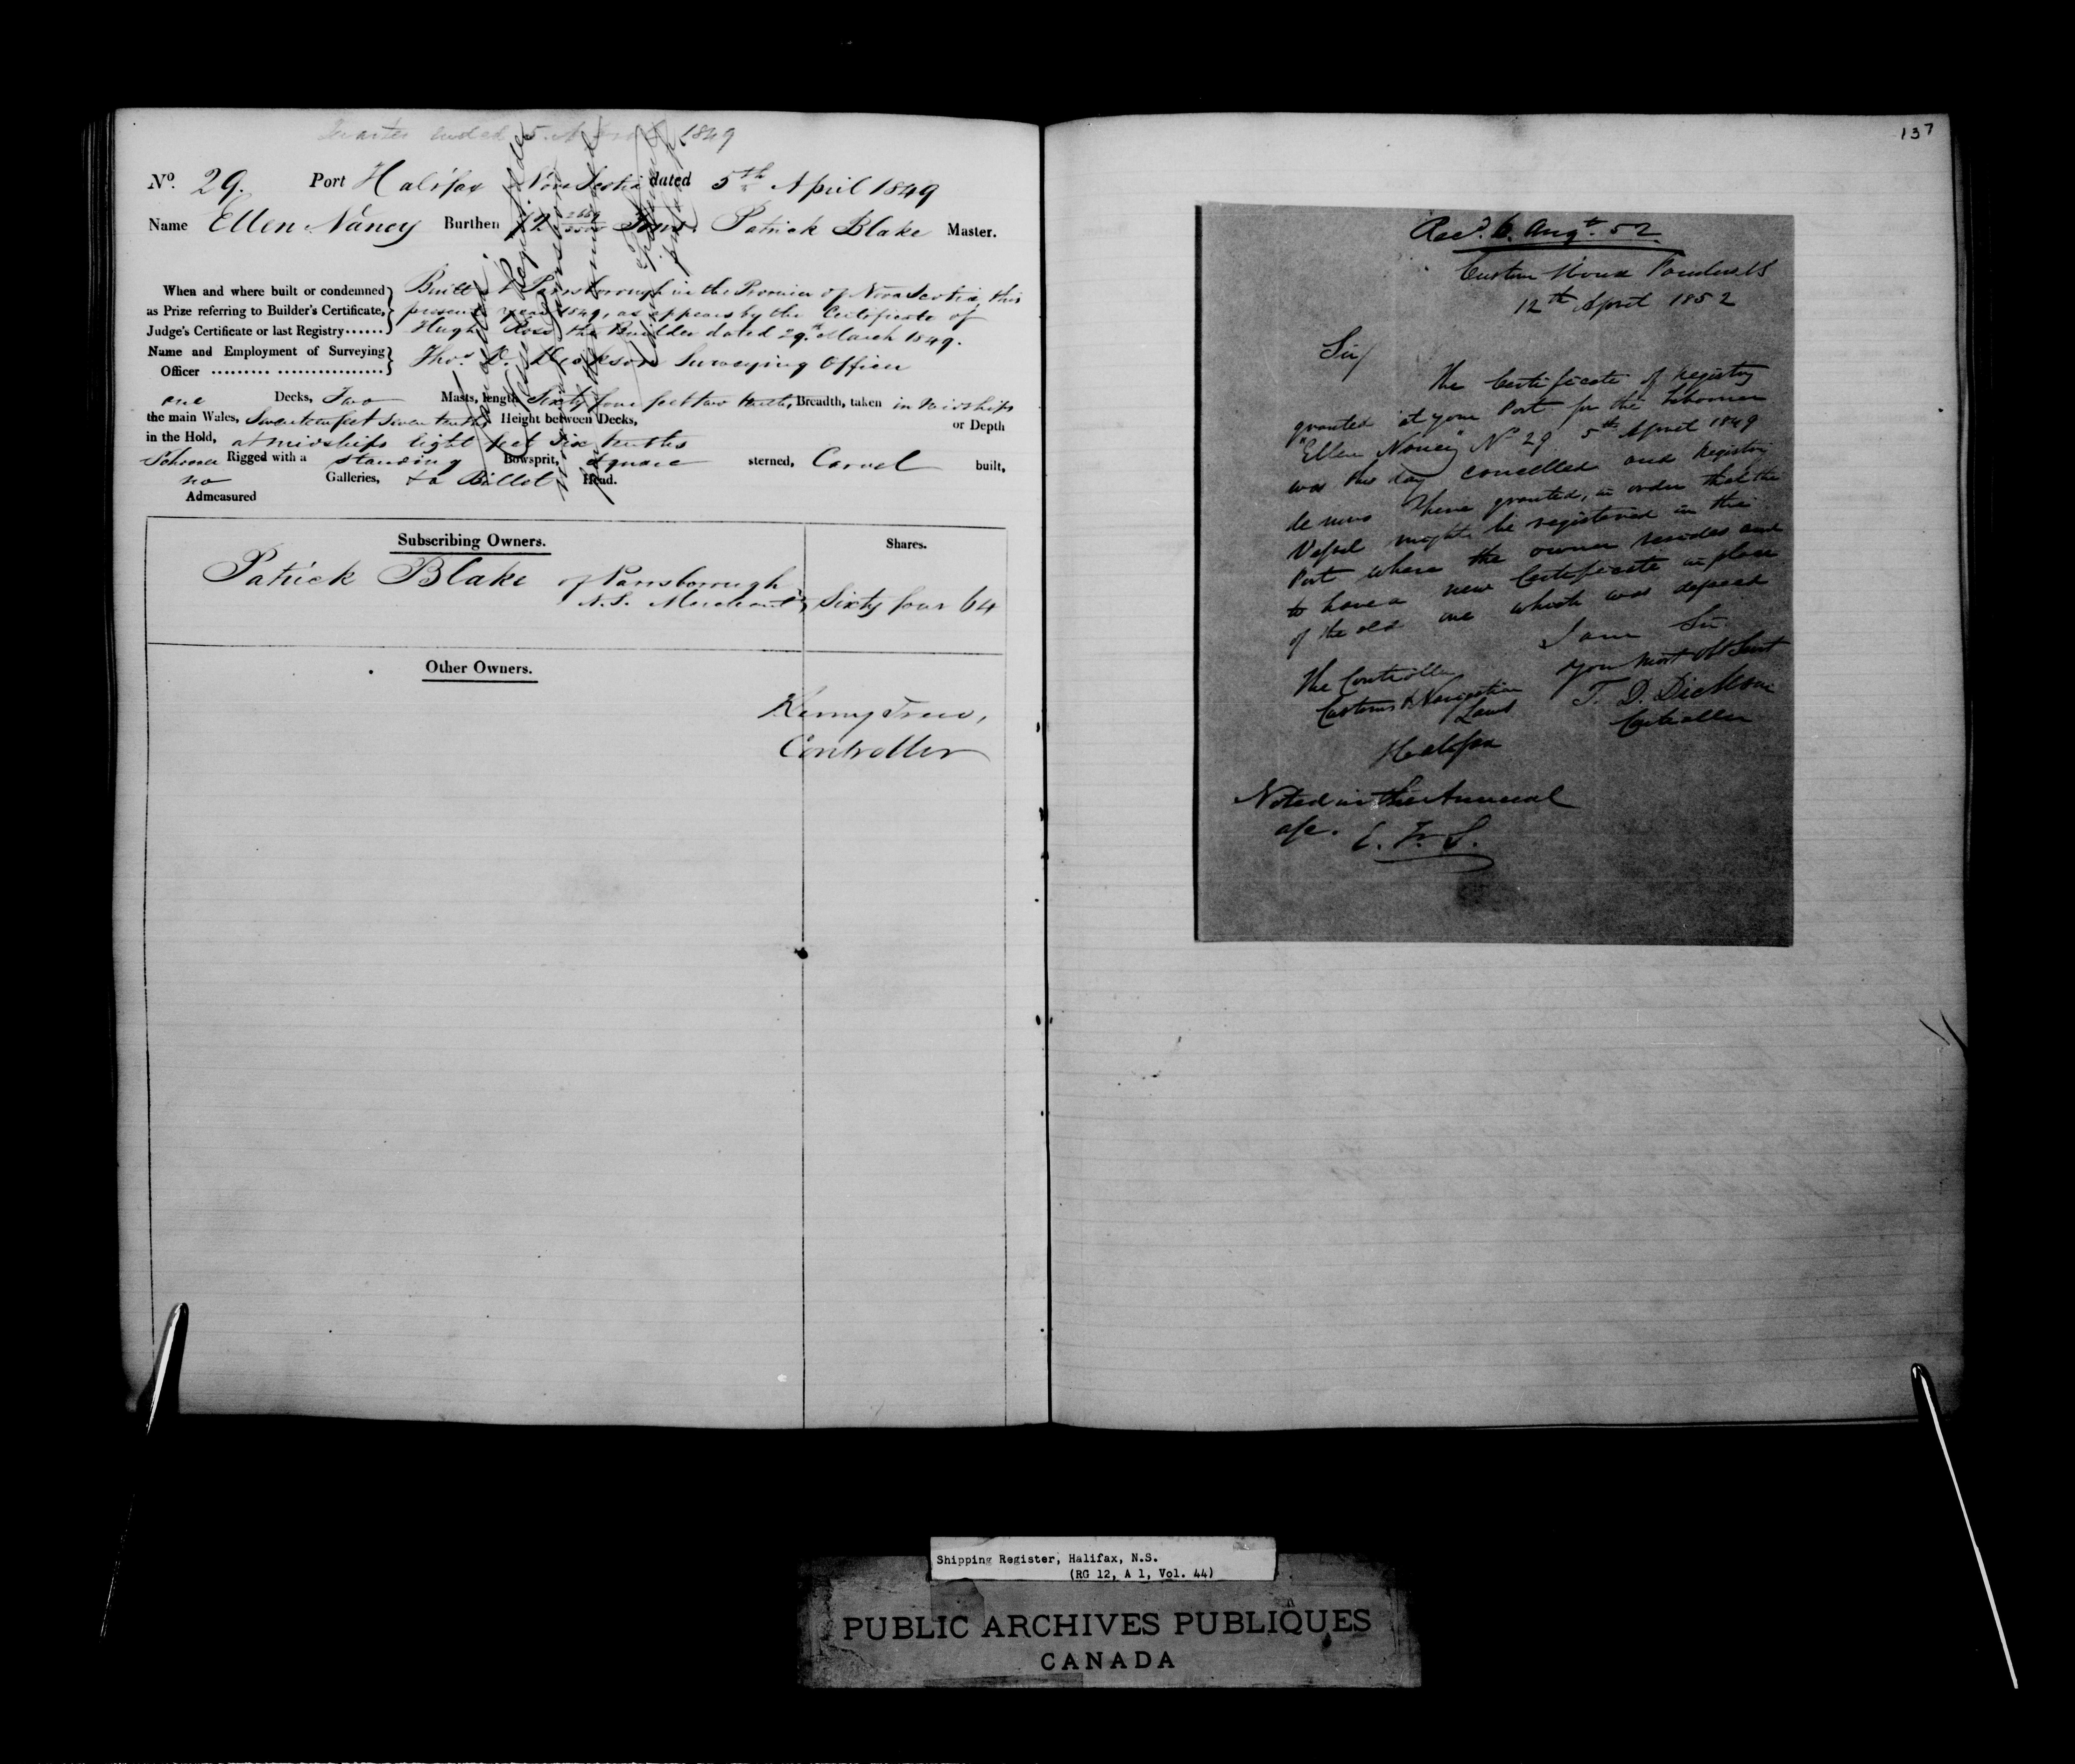 Quarter ended 5 April 1849
No. 29. Port Halifax Nova Scotia dated 5th April 1849
Name Ellen Nancy Burthen 72 2659/3500 Tons. Patrick Blake Master.
When and where built or condemned as Prize referring to Builder's Certificate, Judge's Certificate or last Registry......
Built at Parrsborough in the Province of Nova Scotia, this
present year 1849, as appears by the Certificate of
Hugh Ross the Builder dated 29th March 1849.
Name and Employment of Surveying Officer ......... .................
Thos. D. Dickson Surveying Officer
one Decks, Two Masts, length Sixty four feet two tenths, Breadth, taken in Midships
the main Wales, Seventeen feet seven tenths Height between Decks, or Depth
in the Hold, at midships eight feet six tenths
Schooner Rigged with a standing Bowsprit, square sterned, Carvel built,
no Galleries, & a Billet Head.
Admeasured
Subscribing Owners. Shares.
Patrick Blake of Parrsborough
N.S. Merchant Sixty four 64
Other Owners.
Henry Trew,
Controller
137
Recd. 6. Augt. 52.
Custom House
12th April 1852
Sir/
The Certificate of Registry
granted at your Port for the Schooner
"Ellen Nancy" No 29 5th April 1849
was this day cancelled and Registry
de novo here granted, in order that the
Vessel might be registered in the
Port where the owner resides and
to have a new Certificate in place
of the old one which was defaced
I am Sir
Your Most Obt Servt
T. D. Dickson
Controller
The Controller
Customs & Navigation
Laws
Halifax
Noted in the Annual
a/c. E. F. S.
Shipping Register, Halifax, N.S.
(RG 12, A 1, Vol. 44)
PUBLIC ARCHIVES PUBLIQUES
CANADA